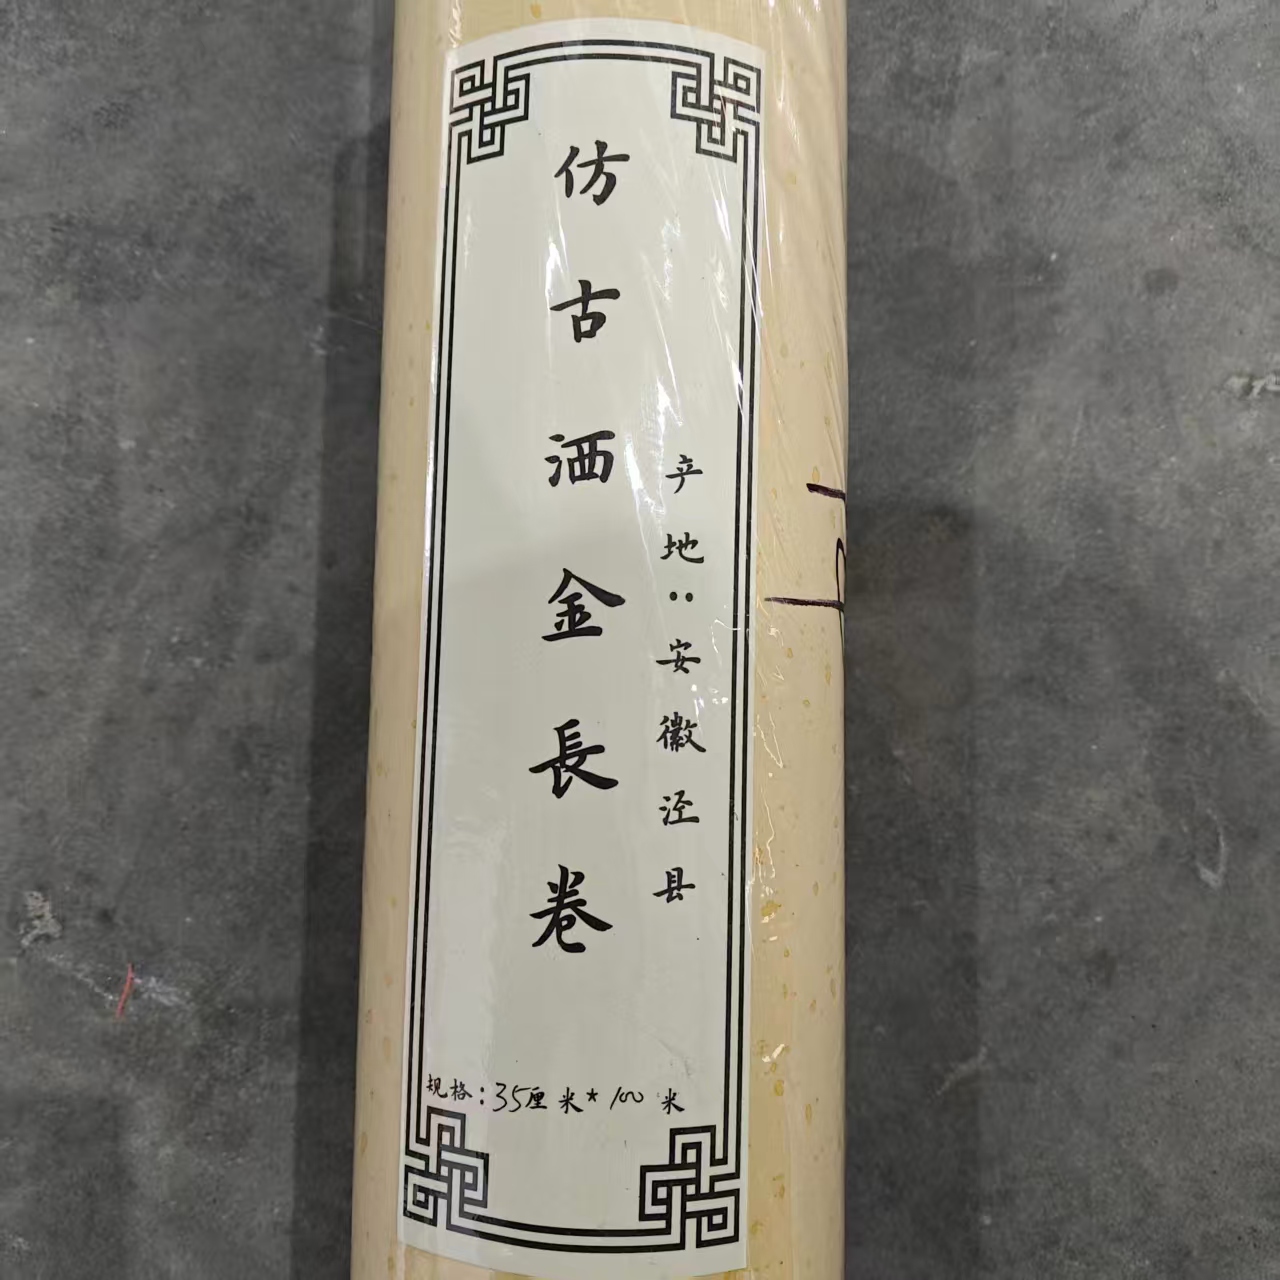 仿古洒金長卷
产地：安徽泾县
规格：35厘米*100米